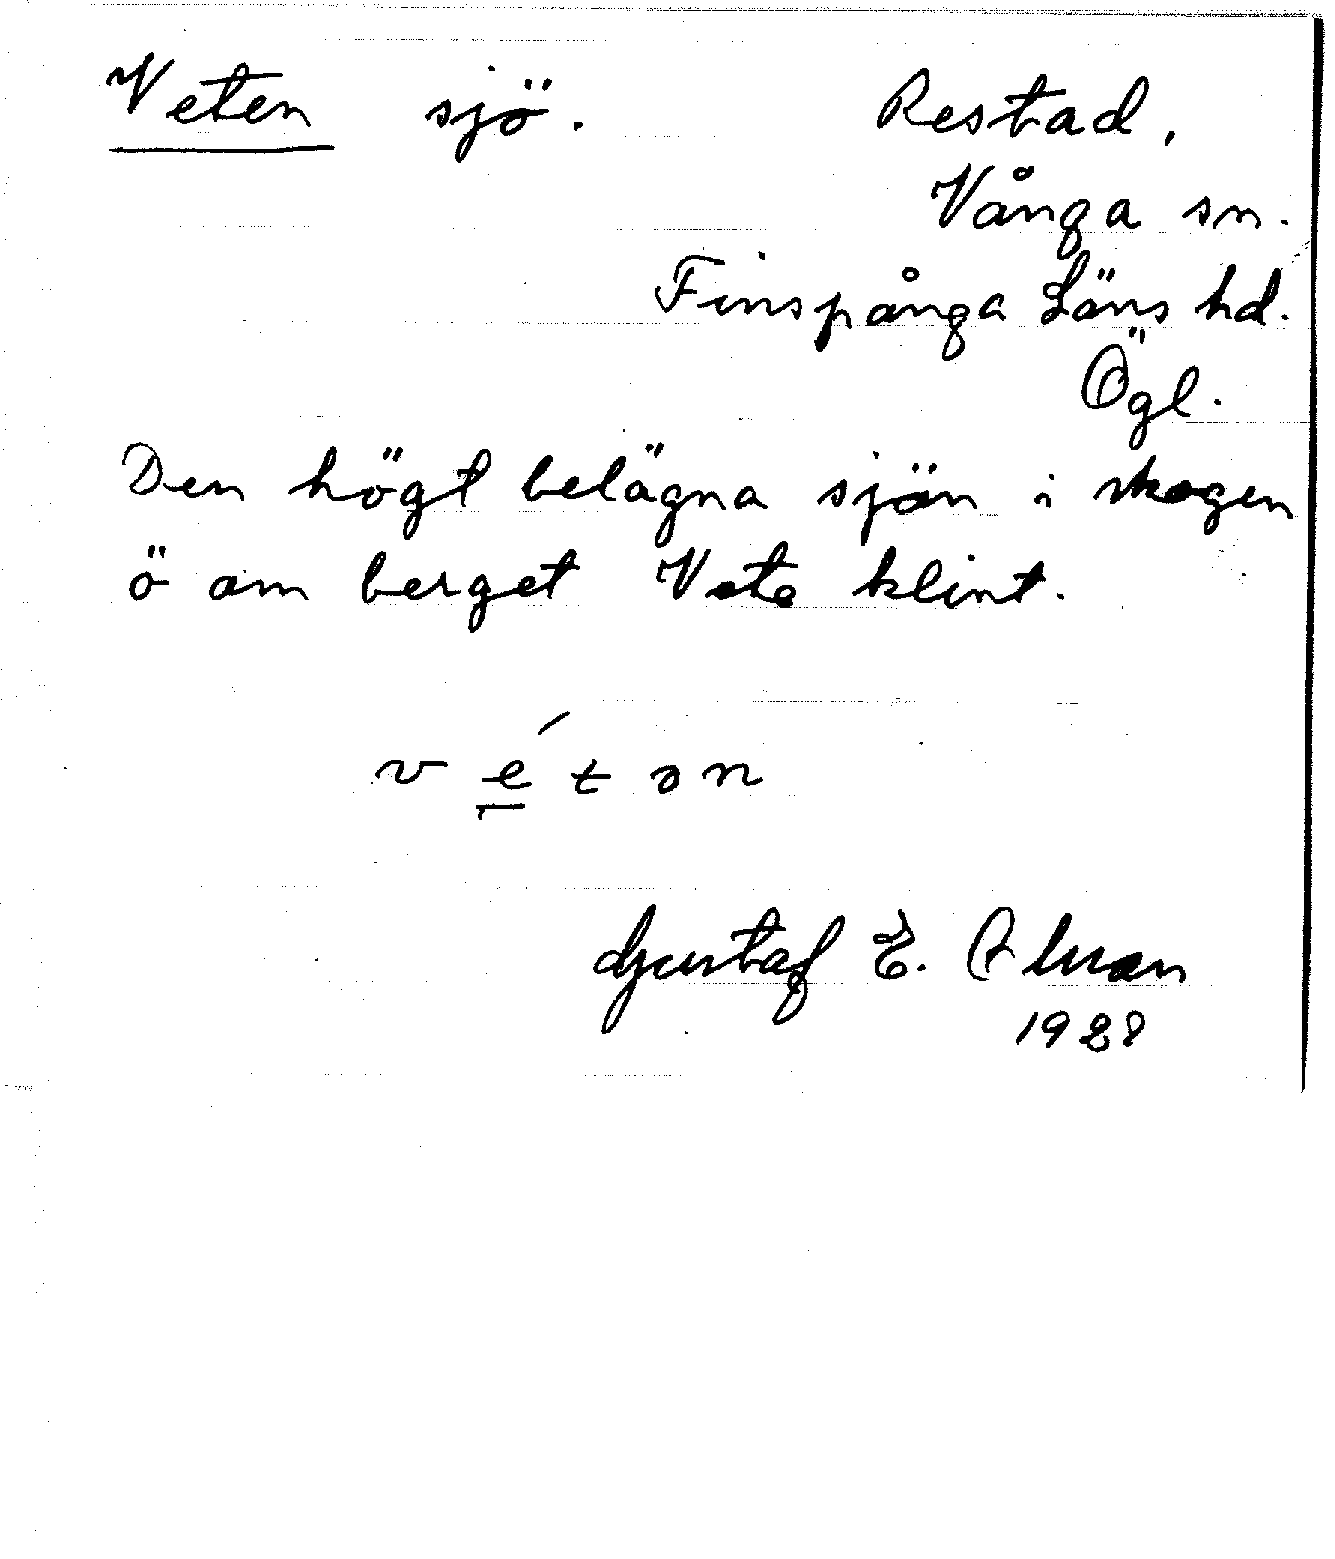 Veten sjö. Restad,
Vånga sn.
Finspånga Läns hd.
Ögl.
Den högt belägna sjön i skogen
ö om berget Vete klint.
v é t ə n
Gustaf E.
1928